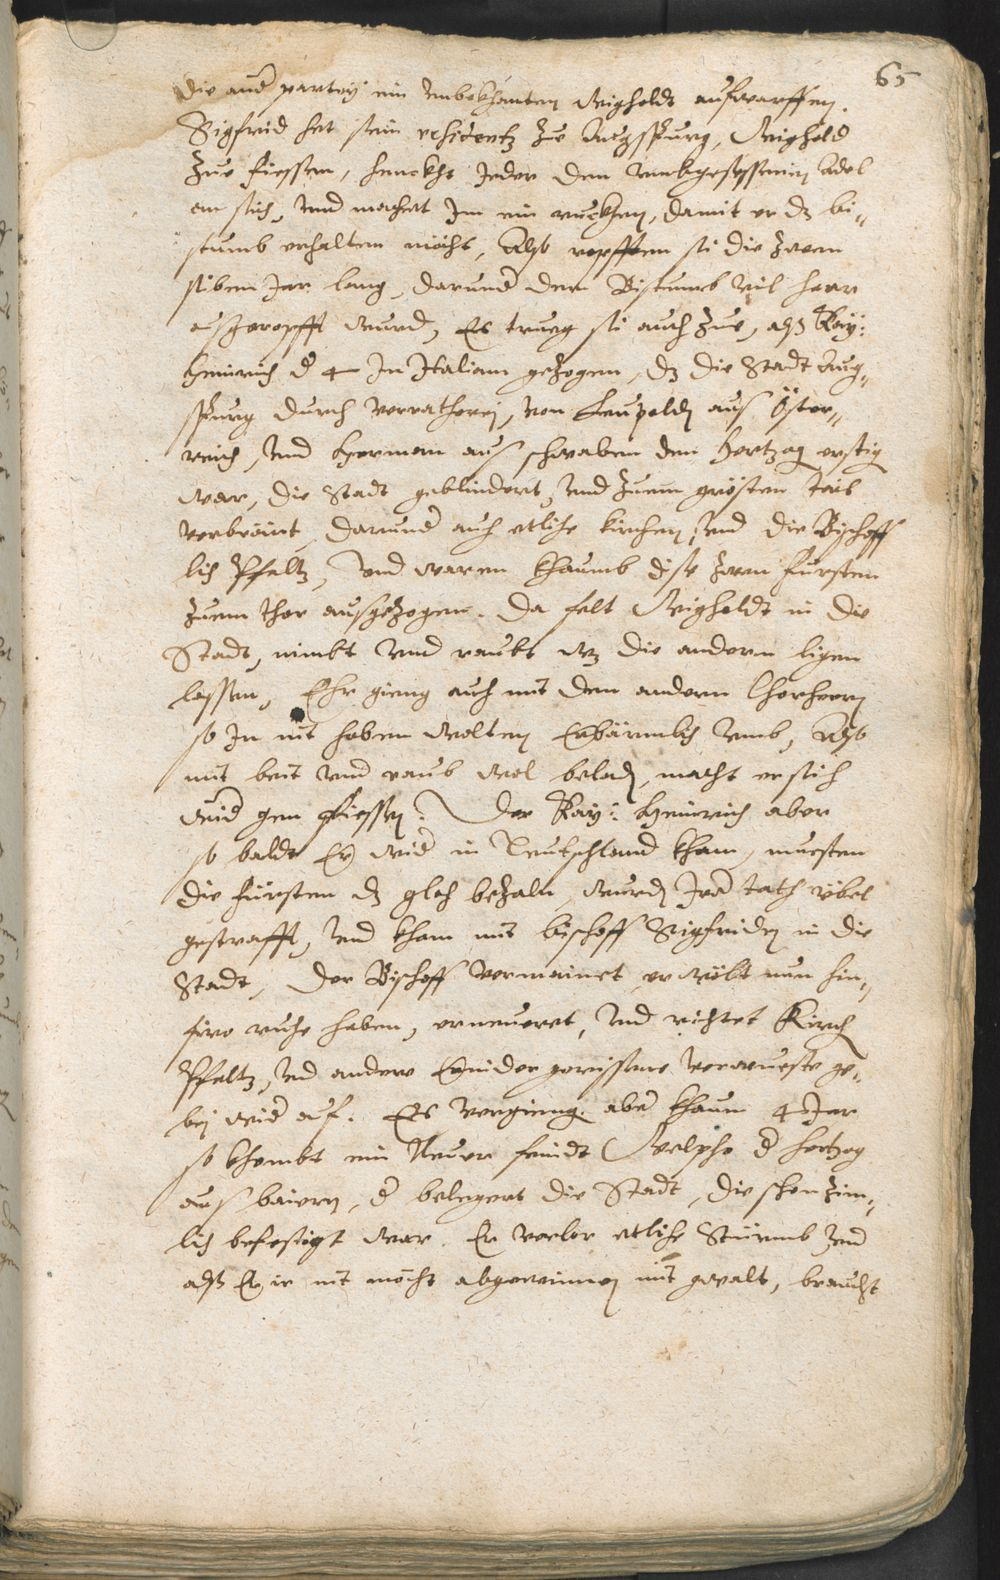 65
die and partey ein unbekhanten Wigholdt aufwarffen.
Sigfrid het sein residentz zue Augspurg, Wighold
zue fiessen, henckht Jeder den umbgesessenen Adel
an sich, und machet Im ein ruckhen, damit er dz bi„
stumb erhalten möcht, Also ropfften si die zwen
siben Jar lang, darund dem Bistumb vil haar
ausgeropfft wurd, Es trueg si auch zue, alß Kay:
Heinrich d 4 In Italiam gezogen, dz die Stadt Aug„
spurg durch verratherei, von Leupoldn aus Öster„
reich, und Herman aus schwaben den Hertzog erstig
war, die Stadt geblindert, und zuem grösten tail
verbrönt, darund auch etliche kirchen, und die Bischoff
lich Pfaltz, und waren khaumb dise zwen fürsten
zuem thor ausgezogen. Da felt Wigholdt in die
Stadt, nimbt und raubt wz die andern ligen
lassen, Ehr gieng auch mit den andern Chorherrn
so In nit haben wolten Erbärmlich umb, Also
mit beut und raub wol beladn, macht er sich
wid gen fiessen. Der Kay: Heinrich aber
so baldt Er wid in Teutschland kham, muesten
die fürsten dz gloch bezaln, wurdn Ire tath übel
gestrafft, und kham mit bischoff Sigfriden in die
Stadt, Der Bischoff vermainet er wölt nun hin„
firo ruhe haben, erneueret, und richtet Kirch
Pfaltz, und andere nider gerissene verwueste ge„
bei wid auf. Es vergieng abe khaum 4 Jar
so khombt ein Neuer feindt Welpho d hertzog
aus bairn, d belegert die Stadt, die schon zim„
lich befestigt war. Er verlor etliche Stürmb und
alß Er ir nit mocht abgewinnen mit gwalt, braucht